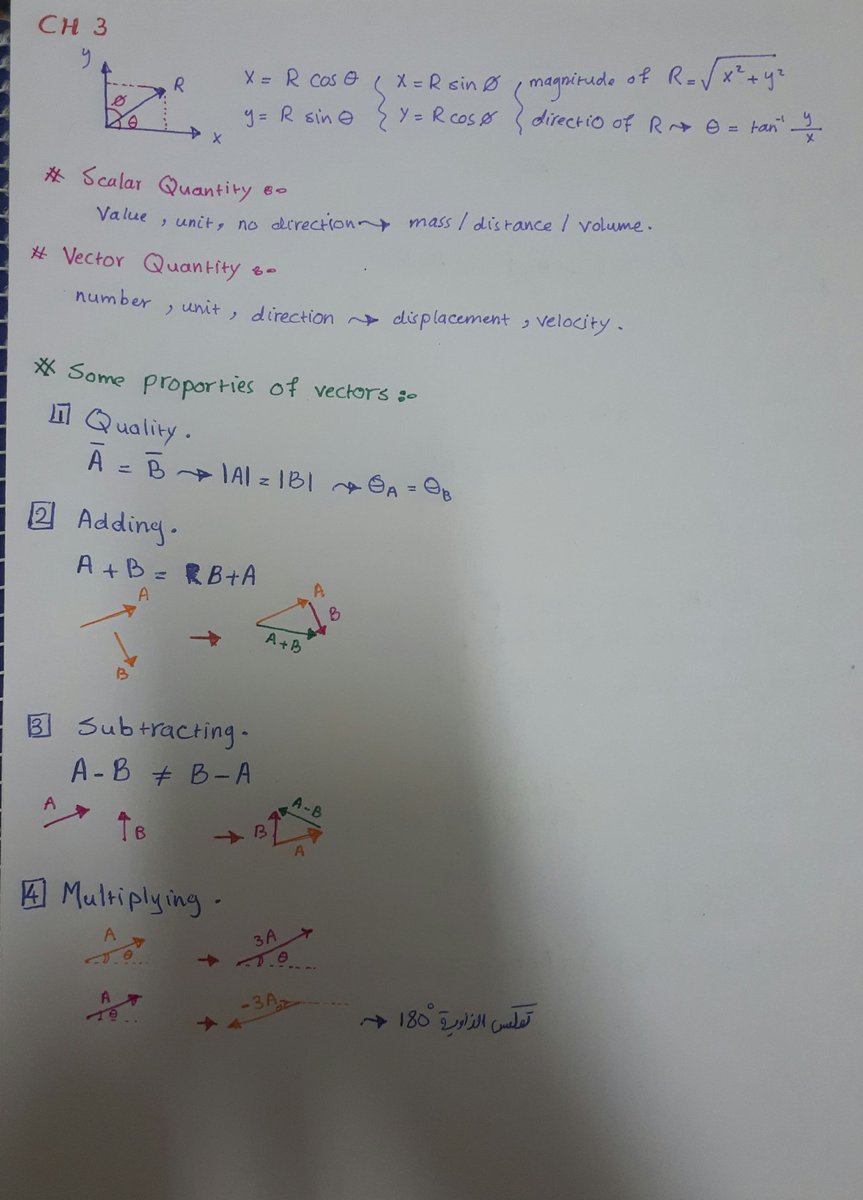 CH 3
y
R
Ø
θ
x
X = R cos θ
y = R sin θ
X = R sin Ø
Y = R cos Ø
magnitude of R = √x² + y²
directio of R → θ = tan⁻¹ y/x
# Scalar Quantity :-
Value, unit, no direction → mass / distance / volume.
# Vector Quantity :-
number, unit, direction → displacement, velocity.
※ Some proporties of vectors :-
1 Quality.
A̅ = B̅ → |A| = |B| → θA = θB
2 Adding.
A + B = B + A
A
B
→
A
B
A+B
3 Subtracting.
A - B ≠ B - A
A
B
→
B
A-B
A
4 Multiplying.
A
θ
→
3A
θ
A
θ
→
-3A
→ 180° تعكس الزاوية